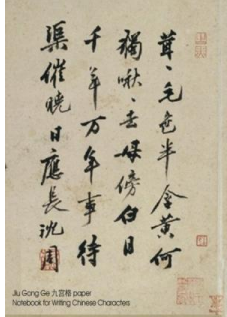 茸〻毛色半含黄何
獨啾〻去母傍白日
千年万年事待
渠催曉日應長沈周
Jiu Gong Ge 九宫格 paper
Notebook for Writing Chinese Characters